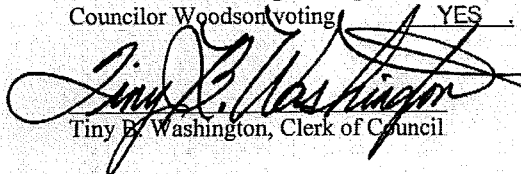 Councilor Woodson voting YES .
Tiny B. Washington
Tiny B. Washington, Clerk of Council